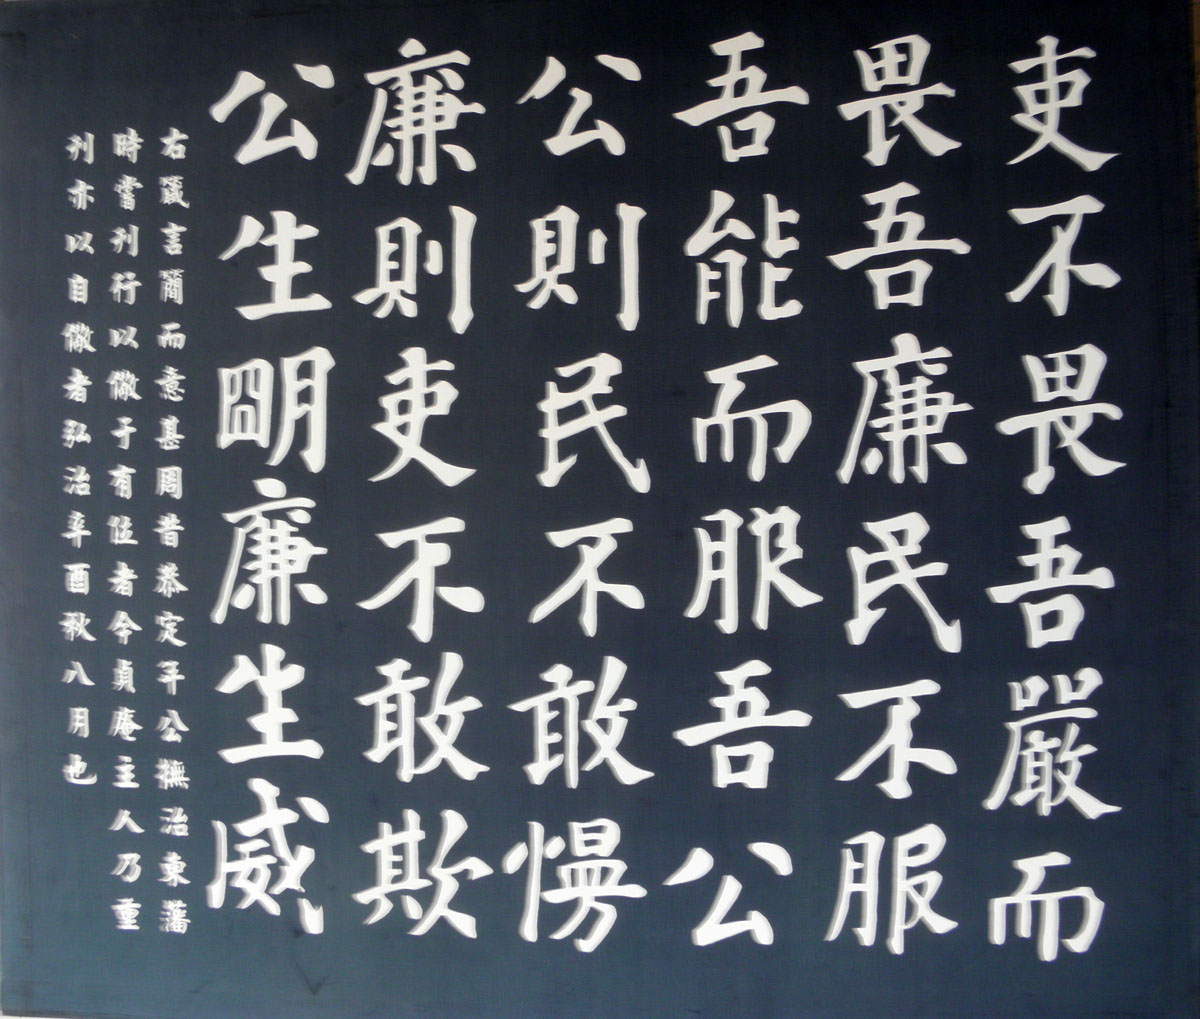 吏不畏吾嚴而
畏吾廉民不服
吾能而服吾公
公則民不敢慢
廉則吏不敢欺
公生朙廉生威
右箴言簡而意甚周昔恭定年公撫治東藩
時嘗刊行以儆于有位者今貞庵主人乃重
刊亦以自儆者弘治辛酉秋八月也